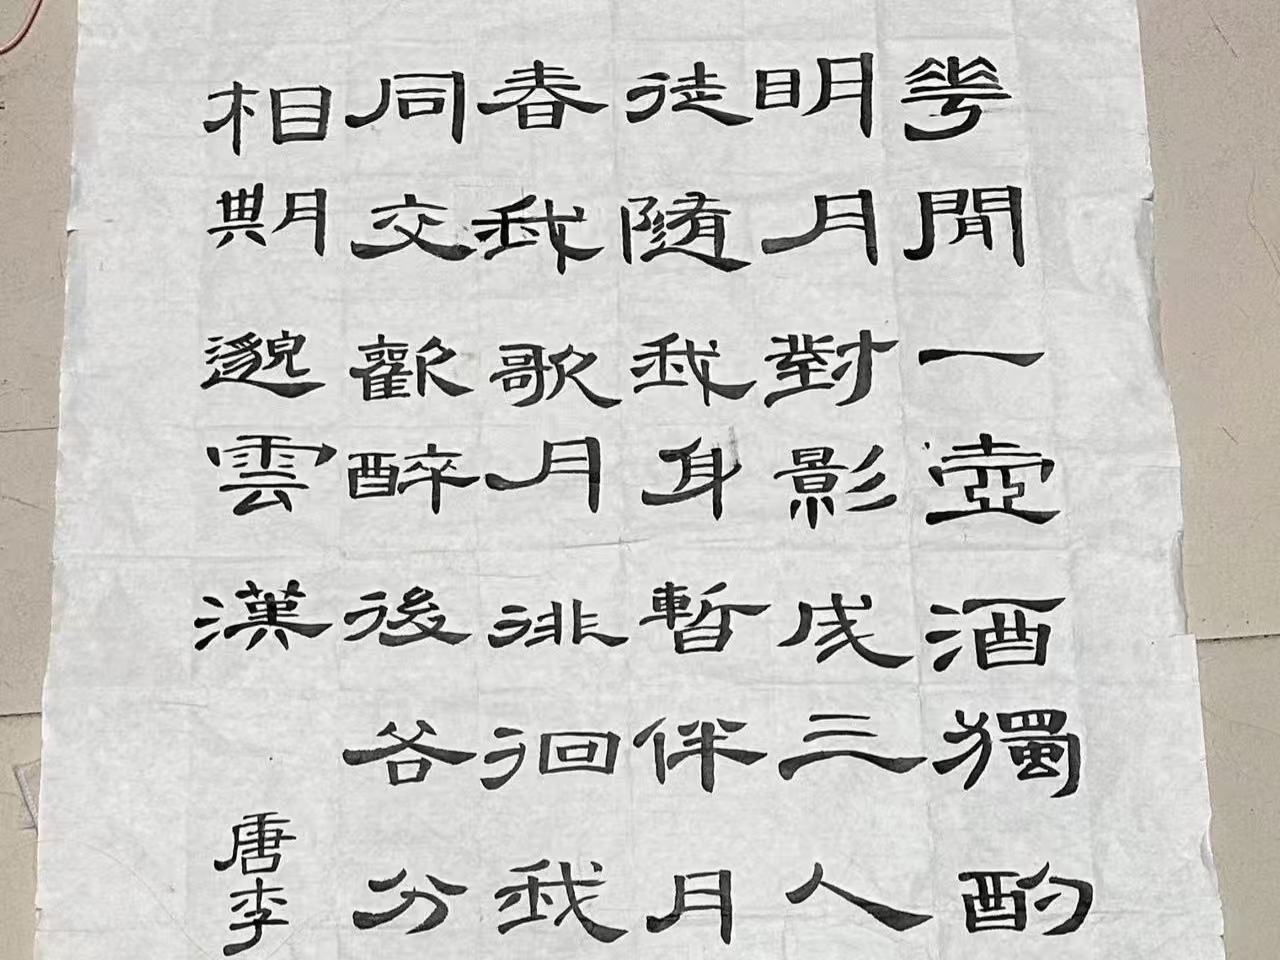 花閒一壺酒獨酌
明月對影成三人
徒隨我身暫伴月
春我歌月徘徊我
同交歡醉後各分
相期邈雲漢
唐李